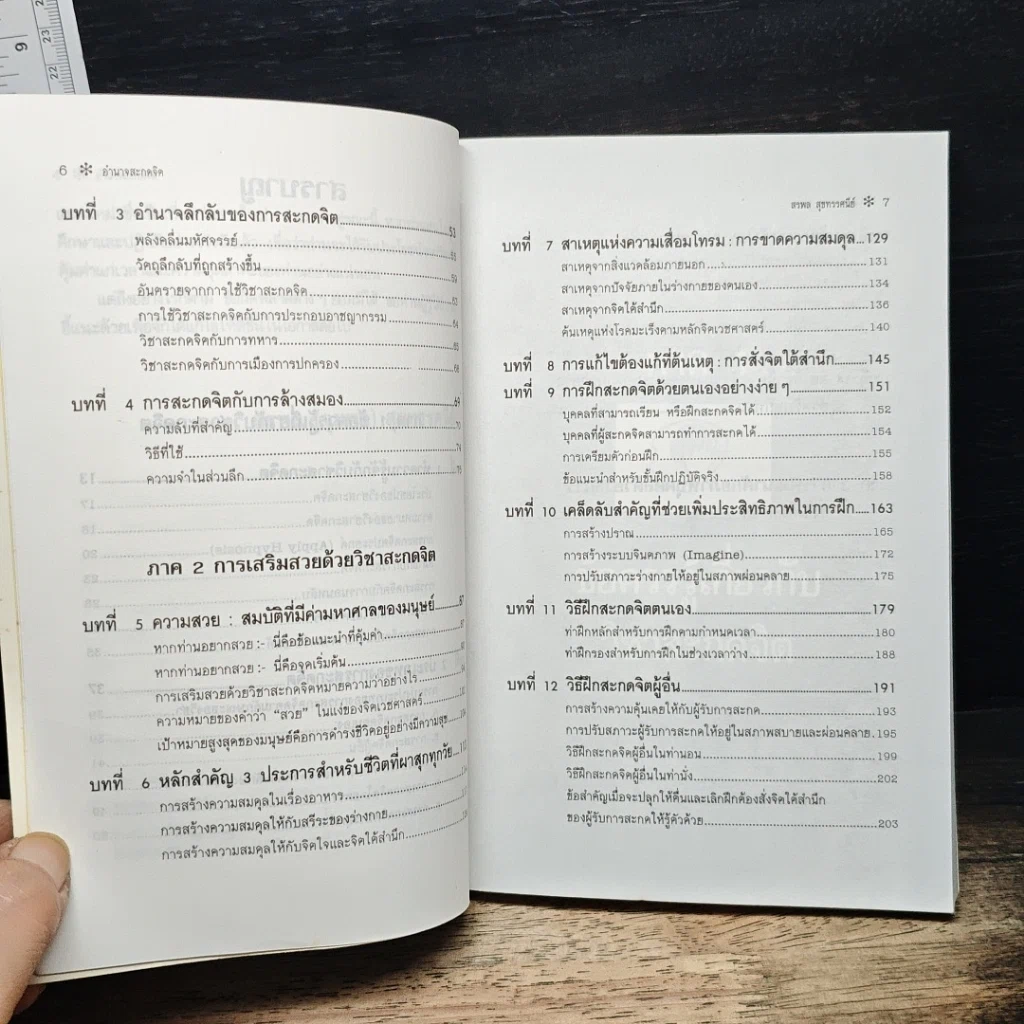 6 ✻ อำนาจสะกดจิต
บทที่ 3 อำนาจลึกลับของการสะกดจิต 53
พลังคลื่นมหัศจรรย์
วัตถุลึกลับที่ถูกสร้างขึ้น 59
อันตรายจากการใช้วิชาสะกดจิต 62
การใช้วิชาสะกดจิตกับการประกอบอาชญากรรม 64
วิชาสะกดจิตกับการทหาร 65
วิชาสะกดจิตกับการเมืองการปกครอง 68
บทที่ 4 การสะกดจิตกับการล้างสมอง 69
ความลับที่สำคัญ 70
วิธีที่ใช้ 74
ความจำในส่วนลึก
ภาค 2 การเสริมสวยด้วยวิชาสะกดจิต
บทที่ 5 ความสวย : สมบัติที่มีค่ามหาศาลของมนุษย์
หากท่านอยากสวย :- นี่คือข้อแนะนำที่คุ้มค่า
หากท่านอยากสวย :- นี่คือจุดเริ่มต้น
การเสริมสวยด้วยวิชาสะกดจิตหมายความว่าอย่างไร
ความหมายของคำว่า “สวย” ในแง่ของจิตเวชศาสตร์
เป้าหมายสูงสุดของมนุษย์คือการดำรงชีวิตอยู่อย่างมีความสุข
บทที่ 6 หลักสำคัญ 3 ประการสำหรับชีวิตที่ผาสุกทุกวัย
การสร้างความสมดุลในเรื่องอาหาร
การสร้างความสมดุลให้กับสรีระของร่างกาย
การสร้างความสมดุลให้กับจิตใจและจิตใต้สำนึก
สรพล สุขทรรศนีย์ ✻ 7
บทที่ 7 สาเหตุแห่งความเสื่อมโทรม : การขาดความสมดุล 129
สาเหตุจากสิ่งแวดล้อมภายนอก 131
สาเหตุจากปัจจัยภายในร่างกายของตนเอง 134
สาเหตุจากจิตใต้สำนึก 136
ต้นเหตุแห่งโรคมะเร็งตามหลักจิตเวชศาสตร์ 140
บทที่ 8 การแก้ไขต้องแก้ที่ต้นเหตุ : การสั่งจิตใต้สำนึก 145
บทที่ 9 การฝึกสะกดจิตด้วยตนเองอย่างง่าย ๆ 151
บุคคลที่สามารถเรียน หรือฝึกสะกดจิตได้ 152
บุคคลที่ผู้สะกดจิตสามารถทำการสะกดได้ 154
การเตรียมตัวก่อนฝึก 155
ข้อแนะนำสำหรับขั้นฝึกปฏิบัติจริง 158
บทที่ 10 เคล็ดลับสำคัญที่ช่วยเพิ่มประสิทธิภาพในการฝึก 163
การสร้างปราณ 165
การสร้างระบบจินตภาพ (Imagine) 172
การปรับสภาวะร่างกายให้อยู่ในสภาพผ่อนคลาย 175
บทที่ 11 วิธีฝึกสะกดจิตตนเอง 179
ท่าฝึกหลักสำหรับการฝึกตามกำหนดเวลา 180
ท่าฝึกรองสำหรับการฝึกในช่วงเวลาว่าง 188
บทที่ 12 วิธีฝึกสะกดจิตผู้อื่น 191
การสร้างความคุ้นเคยให้กับผู้รับการสะกด 193
การปรับสภาวะผู้รับการสะกดให้อยู่ในสภาพสบายและผ่อนคลาย 195
วิธีฝึกสะกดจิตผู้อื่นในท่านอน 199
วิธีฝึกสะกดจิตผู้อื่นในท่านั่ง 202
ข้อสำคัญเมื่อจะปลุกให้ตื่นและเลิกฝึกต้องสั่งจิตใต้สำนึก
ของผู้รับการสะกดให้รู้ตัวด้วย 203